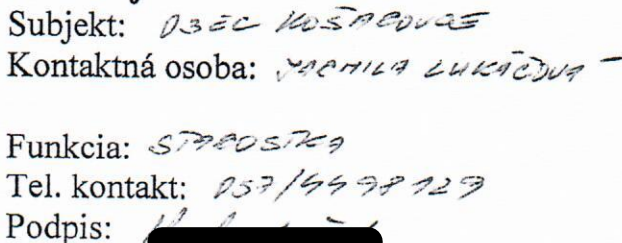 Subjekt: OBEC KOŠAROVCE
Kontaktná osoba: JARMILA LUKÁČOVÁ
Funkcia: STAROSTKA
Tel. kontakt: 057/4498129
Podpis: